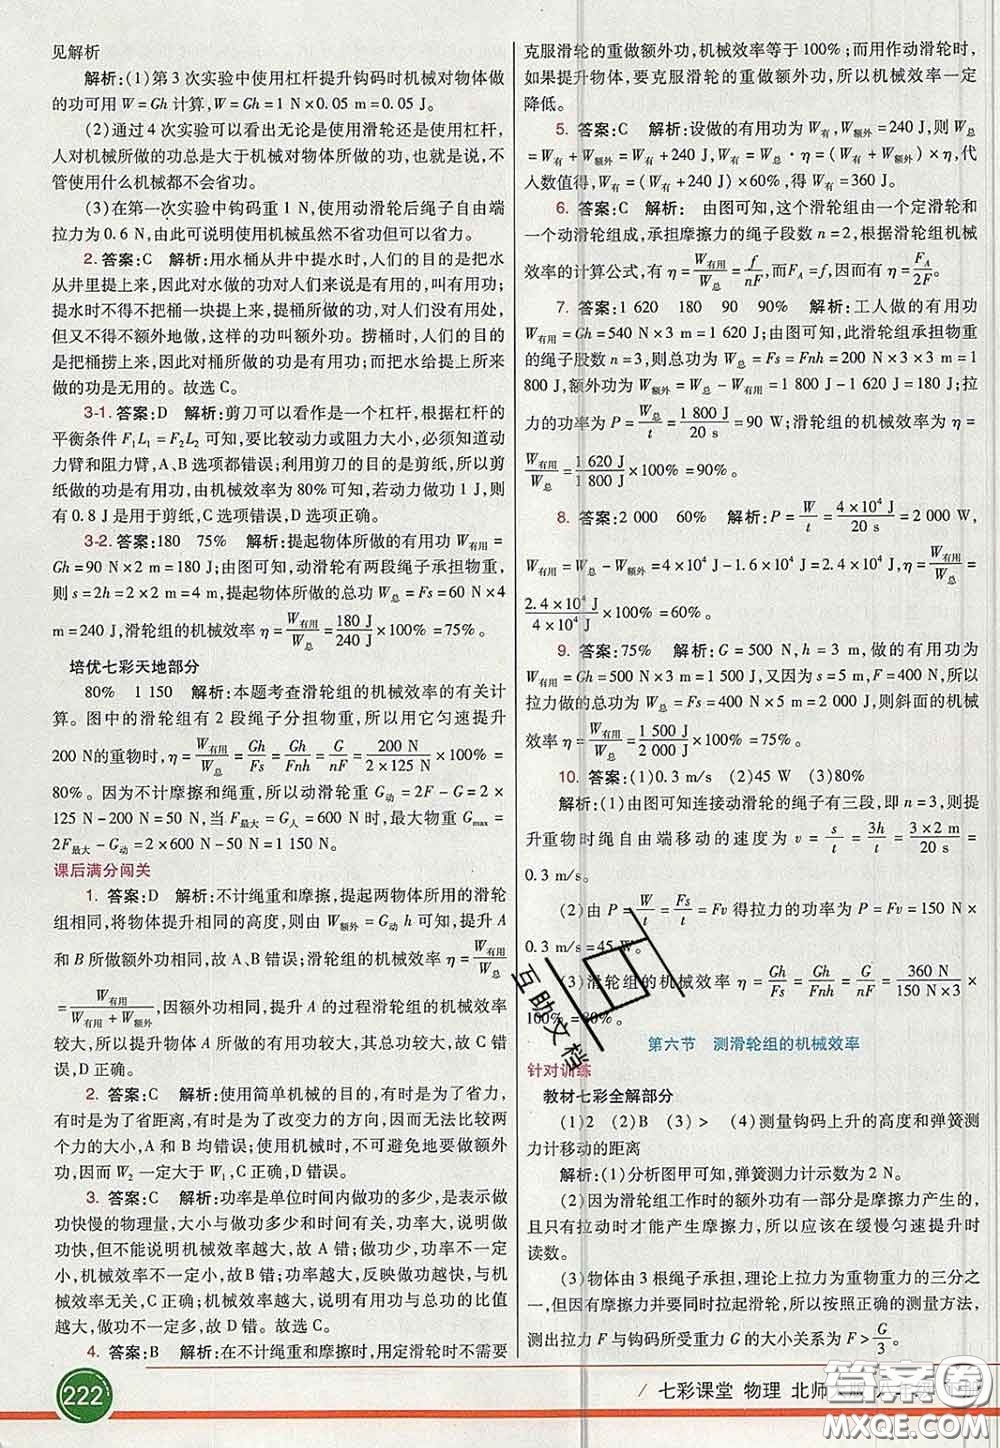 见解析
解析:(1)第3次实验中使用杠杆提升钩码时机械对物体做
的功可用W=Gh计算,W=Gh=1 N×0.05 m=0.05 J。
(2)通过4次实验可以看出无论是使用滑轮还是使用杠杆,
人对机械所做的功总是大于机械对物体所做的功,也就是说,不
管使用什么机械都不会省功。
(3)在第一次实验中钩码重1 N,使用动滑轮后绳子自由端
拉力为0.6 N,由此可说明使用机械虽然不省功但可以省力。
2. 答案:C 解析:用水桶从井中提水时,人们的目的是把水
从井里提上来,因此对水做的功对人们来说是有用的,叫有用功;
提水时不得不把桶一块提上来,提桶所做的功,对人们没有用处,
但不得不额外地做,这样的功叫额外功。捞桶时,人们的目的是
把桶捞上来,因此对桶所做的功是有用功;而把水给提上来所
做的功是无用的。故选C。
3-1. 答案:D 解析:剪刀可以看作是一个杠杆,根据杠杆的
平衡条件F₁L₁=F₂L₂可知,要比较动力或阻力大小,必须知道动
力臂和阻力臂,A、B选项都错误;利用剪刀的目的是剪纸,所以剪
纸做的功是有用功,由机械效率为80%可知,若动力做功1 J,则
有0.8 J是用于剪纸,C选项错误,D选项正确。
3-2. 答案:180 75% 解析:提起物体所做的有用功W有用=
Gh=90 N×2 m=180 J;由图可知,动滑轮有两段绳子承担物重,
则s=2h=2×2 m=4 m,提起物体所做的总功W总=Fs=60 N×4
m=240 J,滑轮组的机械效率η=W有用/W总=180 J/240 J×100%=75%。
培优七彩天地部分
80% 1 150 解析:本题考查滑轮组的机械效率的有关计
算。图中的滑轮组有2段绳子分担物重,所以用它匀速提升
200 N的重物时,η=W有用/W总=Gh/Fs=Gh/Fnh=G/nF=200 N/2×125 N×100%=
80%。因为不计摩擦和绳重,所以动滑轮重G动=2F-G=2×
125 N-200 N=50 N,当F最大=G人=600 N时,最大物重Gmax=
2F最大-G动=2×600 N-50 N=1 150 N。
课后满分闯关
1. 答案:D 解析:不计绳重和摩擦,提起两物体所用的滑轮
组相同,将物体提升相同的高度,则由W额外=G动h可知,提升A
和B所做额外功相同,故A、B错误;滑轮组的机械效率η=W有用/W总
=W有用/W有用+W额外,因额外功相同,提升A的过程滑轮组的机械效率
较大,所以提升物体A所做的有用功较大,其总功较大,故C错
误,D正确。
2. 答案:C 解析:使用简单机械的目的,有时是为了省力,
有时是为了省距离,有时是为了改变力的方向,因而无法比较两
个力的大小,A和B均错误;使用机械时,不可避免地要做额外
功,因而W₂一定大于W₁,C正确,D错误。
3. 答案:C 解析:功率是单位时间内做功的多少,是表示做
功快慢的物理量,大小与做功多少和时间有关,功率大,说明做
功快,但不能说明机械效率越大,故A错;做功越少,功率不一定
小,机械效率不一定小,故B错;功率越大,反映做功越快,与机
械效率无关,C正确;机械效率越大,说明有用功与总功的比值
越大,做功不一定多,故D错。故选C。
4. 答案:B 解析:在不计绳重和摩擦时,用定滑轮时不需要
克服滑轮的重做额外功,机械效率等于100%;而用作动滑轮时,
如果提升物体,要克服滑轮的重做额外功,所以机械效率一定
降低。
5. 答案:C 解析:设做的有用功为W有,W额外=240 J,则W总
=W有+W额外=W有+240 J,W有=W总·η=(W有+W额外)×η,代
入数值得,W有=(W有+240 J)×60%,得W有=360 J。
6. 答案:C 解析: 由图可知,这个滑轮组由一个定滑轮和
一个动滑轮组成,承担摩擦力的绳子段数n=2,根据滑轮组机械
效率的计算公式,有η=W有用/W总=f/nF,而FA=f,因而可得,η=FA/2F。
7. 答案:1 620 180 90 90% 解析:工人做的有用功
W有用=Gh=540 N×3 m=1 620 J;由图可知,此滑轮组承担物重
的绳子股数n=3,则总功为W总=Fs=Fnh=200 N×3×3 m=1
800 J,额外功为W额外=W总-W有用=1 800 J-1 620 J=180 J;拉
力的功率为P=W总/t=1 800 J/20 s=90 W;滑轮组的机械效率为η=
W有用/W总=1 620 J/1 800 J×100%=90%。
8. 答案:2 000 60% 解析:P=W/t=4×10⁴ J/20 s=2 000 W,
W有用=W总-W额外=4×10⁴ J-1.6×10⁴ J=2.4×10⁴ J,η=W有用/W总=
2.4×10⁴ J/4×10⁴ J×100%=60%。
9. 答案:75% 解析:G=500 N,h=3 m,做的有用功为
W有用=Gh=500 N×3 m=1 500 J,又因为s=5 m,F=400 N,所以
拉力做的总功为W总=Fs=400 N×5 m=2 000 J,则斜面的机械
效率η=W有用/W总=1 500 J/2 000 J×100%=75%。
10. 答案:(1)0.3 m/s (2)45 W (3)80%
解析:(1)由图可知连接动滑轮的绳子有三段,即n=3,则提
升重物时绳自由端移动的速度为v=s/t=3h/t=3×2 m/20 s=
0.3 m/s。
(2)由P=W/t=Fs/t=Fv得拉力的功率为P=Fv=150 N×
0.3 m/s=45 W。
(3)滑轮组的机械效率η=Gh/Fs=Gh/Fnh=G/nF=360 N/150 N×3×
100%=80%。
第六节 测滑轮组的机械效率
针对训练
教材七彩全解部分
(1)2 (2)B (3)> (4)测量钩码上升的高度和弹簧测
力计移动的距离
解析:(1)分析图甲可知,弹簧测力计示数为2 N。
(2)因为滑轮组工作时的额外功有一部分是摩擦力产生的,
且只有拉动时才能产生摩擦力,所以应该在缓慢匀速提升时
读数。
(3)物体由3根绳子承担,理论上拉力为重物重力的三分之
一,但因有摩擦力并要同时拉起滑轮,所以按照正确的测量方法,
测出拉力F与钩码所受重力G的大小关系为F>G/3。
互助文档
222
七彩课堂 物理 北师
答案圈
MXQE.COM